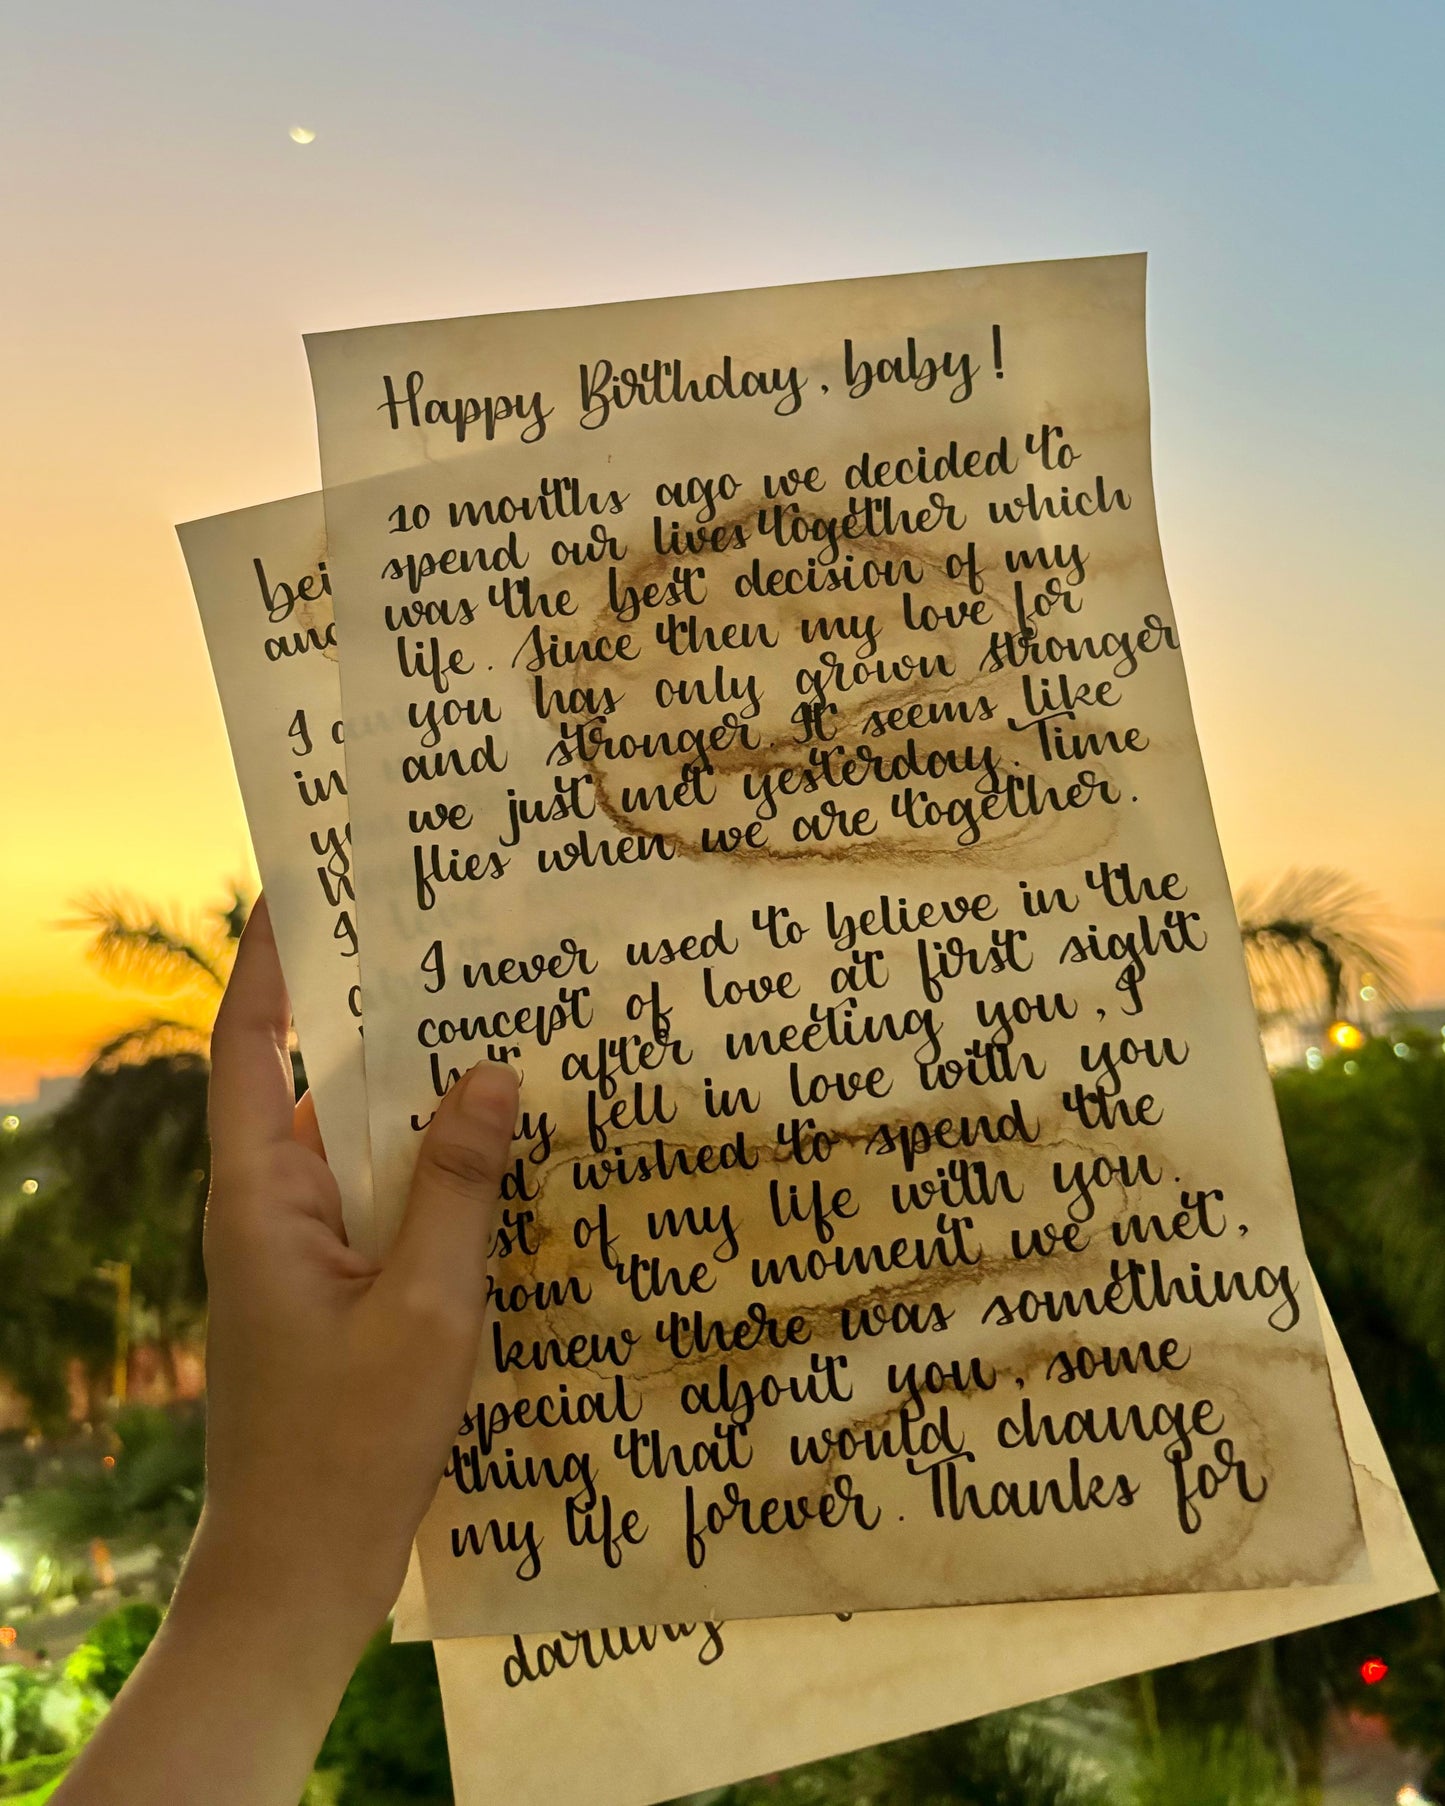 Happy Birthday, baby!
10 months ago we decided to
spend our lives together which
was the best decision of my
life. Since then my love for
you has only grown stronger
and stronger. It seems like
we just met yesterday. Time
flies when we are together.
I never used to believe in the
concept of love at first sight
but after meeting you, I
fell in love with you
wished to spend the
of my life with you.
the moment we met,
knew there was something
special about you, some
thing that would change
my life forever. Thanks for
and
I
in
darling